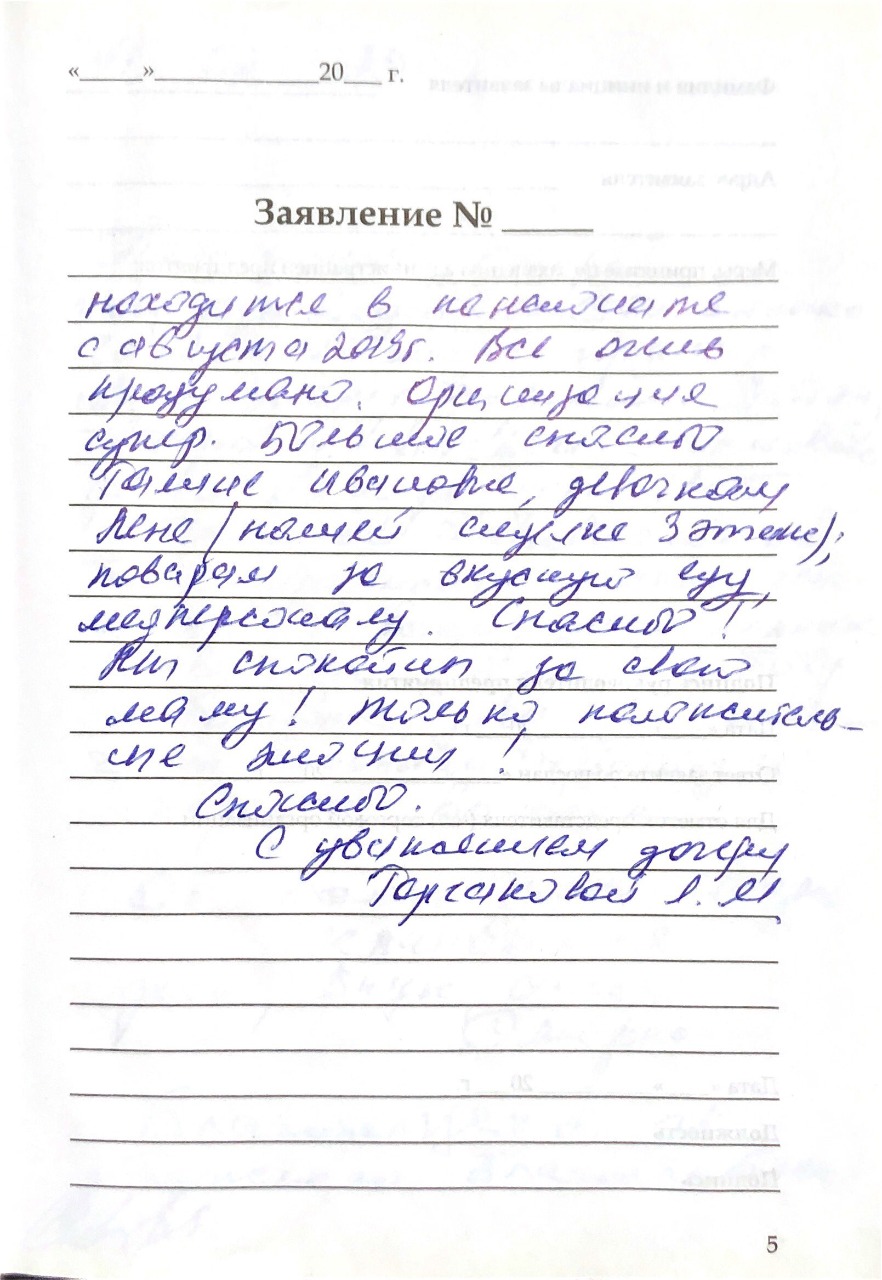 «_____»_____________20___ г.
Заявление № ______
находится в пансионате
с августа 2019г. Все очень
продумано. Организация
супер. Большое спасибо
Галине Ивановне, девочкам
Лене (нашей сиделке 3 этажа),
поварам за вкусную еду,
медперсоналу. Спасибо!
Мы спокойны за свою
маму! Только положитель-
ные эмоции!
Спасибо.
С уважением дочери
Горчаковой Л. М
5